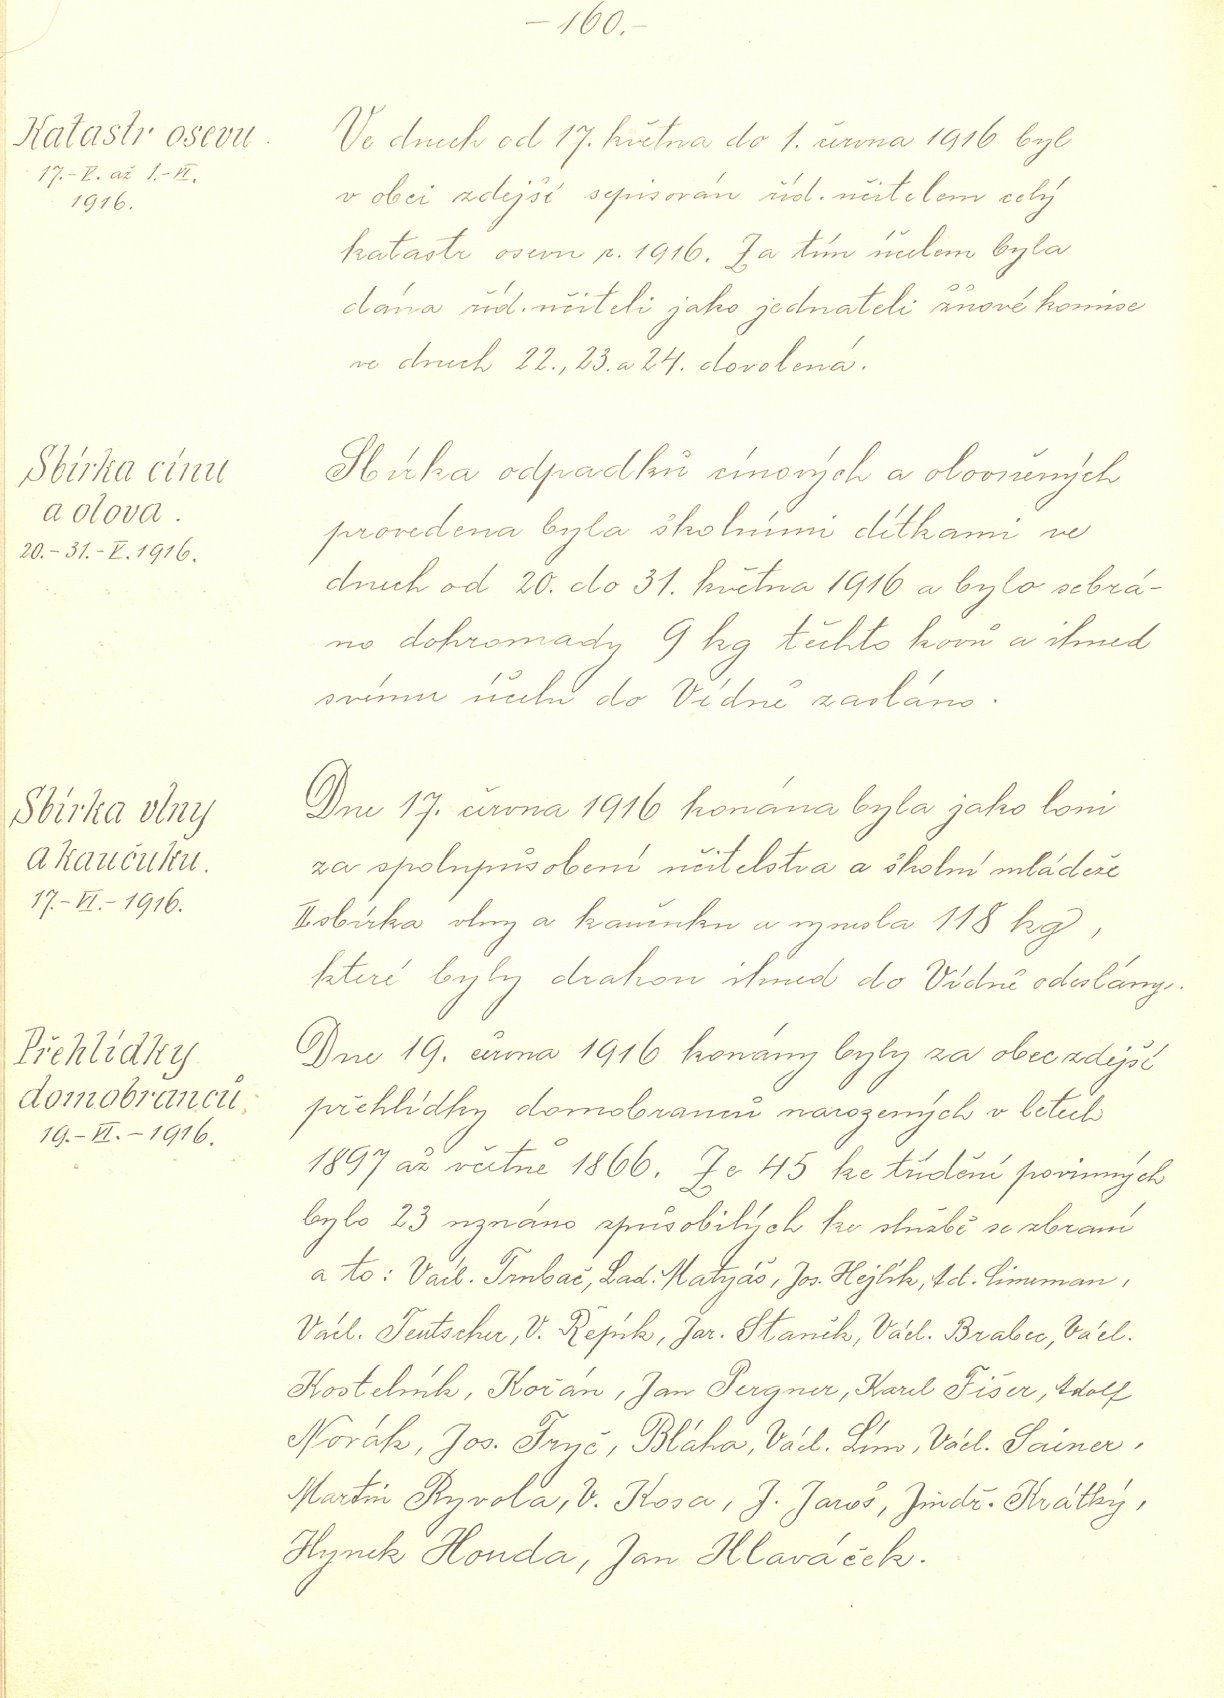 – 160. –
Katastr osevu.
17.–V. až 1.–VI.
1916.
Ve dnech od 17. května do 1. června 1916 byl
v obci zdejší sepisován říd. učitelem celý
katastr osevu r. 1916. Za tím účelem byla
dána říd. učiteli jako jednateli žňové komise
ve dnech 22., 23. a 24. dovolená.
Sbírka cínu
a olova.
20.–31.–V. 1916.
Sbírka odpadků cínových a olověných
provedena byla školními dítkami ve
dnech od 20. do 31. května 1916 a bylo sebrá-
no dohromady 9 kg těchto kovů a ihned
svému účelu do Vídně zasláno.
Sbírka vlny
a kaučuku.
17.–VI.–1916.
Dne 17. června 1916 konána byla jako loni
za spolupůsobení učitelstva a školní mládeže
II. sbírka vlny a kaučuku a vynesla 118 kg,
které byly drahou ihned do Vídně odeslány.
Přehlídky
domobranců.
19.–VI.–1916.
Dne 19. června 1916 konány byly za obec zdejší
přehlídky domobranců narozených v letech
1897 až včetně 1866. Ze 45 ke třídění povinných
bylo 23 uznáno způsobilých ke službě se zbraní
a to: Václ. Trubač, Lad. Matyáš, Jos. Hejlík, Ad. Cimrman,
Václ. Teutscher, V. Řepík, Jar. Staněk, Václ. Brabec, Václ.
Kostelník, Kořán, Jan Pergner, Karel Fišer, Adolf
Novák, Jos. Fryč, Bláha, Václ. Lím, Václ. Sainer,
Martin Ryvola, V. Kosa, J. Jaroš, Jindř. Krátký,
Hynek Honda, Jan Hlaváček.